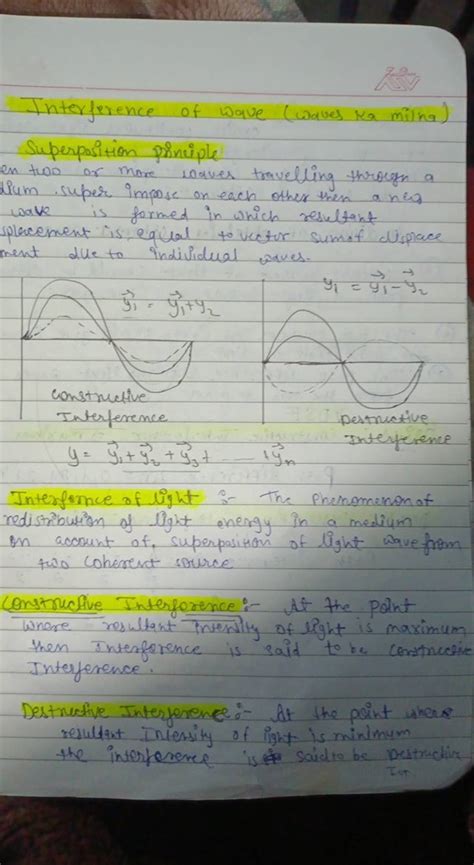 Interference of wave (waves ka milna)
Superposition principle
en two or more waves travelling through a
dium super impose on each other then a new
wave is formed in which resultant
splacement is equal to vector sum of displace
ment due to individual waves.
y₁⃗ = y₁⃗+y₂
y₁ = y₁⃗-y₂⃗
Constructive
Interference
Destructive
Interference
y = y₁⃗+y₂⃗+y₃⃗+ ...... +y⃗n
Interfornce of light :- The phenomenon of
redistribution of light energy in a medium
on account of, superposition of light wave from
two coherent source
Constructive Interference:- At the point
where resultant intensity of light is maximum
then Interference is said to be constructive
Interference.
Destructive Interference:- At the point where
resultant Intensity of light is minimum
the interference is said to be Destructive